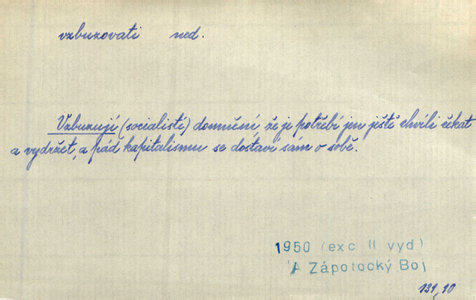 vzbuzovati ned.
Vzbuzují (socialisté) domnění, že je potřebí jen ještě chvíli čekat
a vydržet, a pád kapitalismu se dostaví sám o sobě.
1950 (exc II vyd)
A Zápotocký Boj
121,10